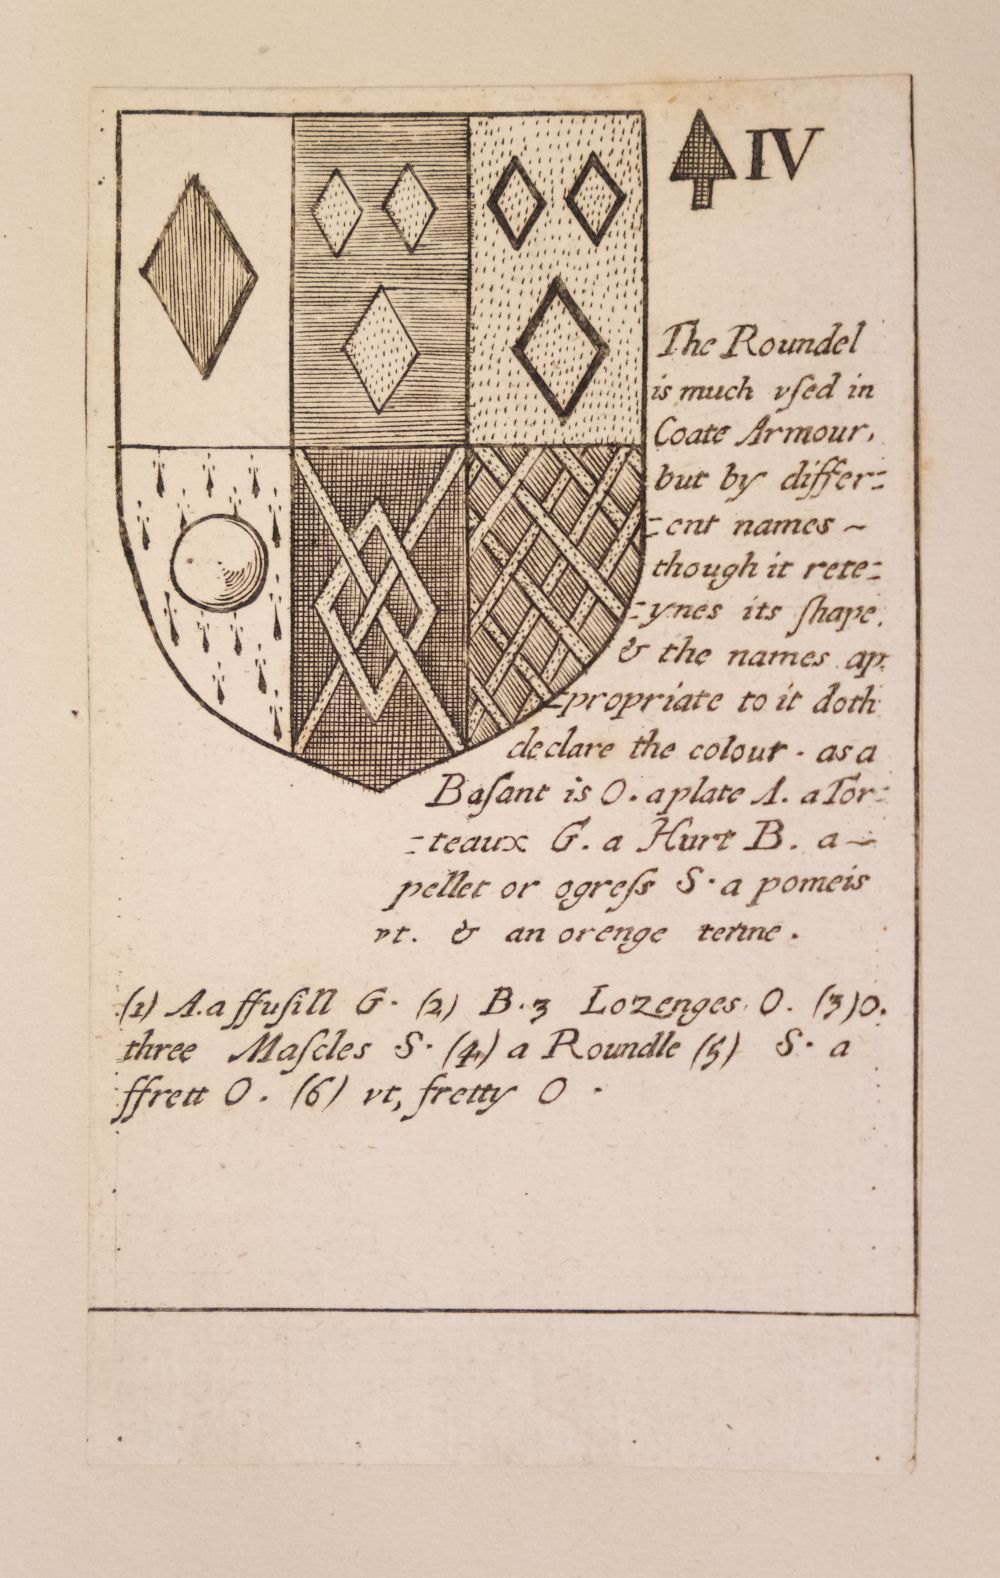 IV
The Roundel
is much vſed in
Coate Armour,
but by differ⹀
⹀ent names ~
though it rete⹀
⹀ynes its ſhape,
& the names ap⹀
⹀propriate to it doth
declare the colour · as a
Baſant is O. a plate A. a Tor⹀
⹀teaux G. a Hurt B. a ~
pellet or ogreſs S · a pomeis
vt. & an orenge tenne .
(1) A. a ffuſill G · (2) B. 3 Lozenges O. (3) O.
three Maſcles S · (4) a Roundle (5) S · a
ffrett O . (6) vt, fretty O ·